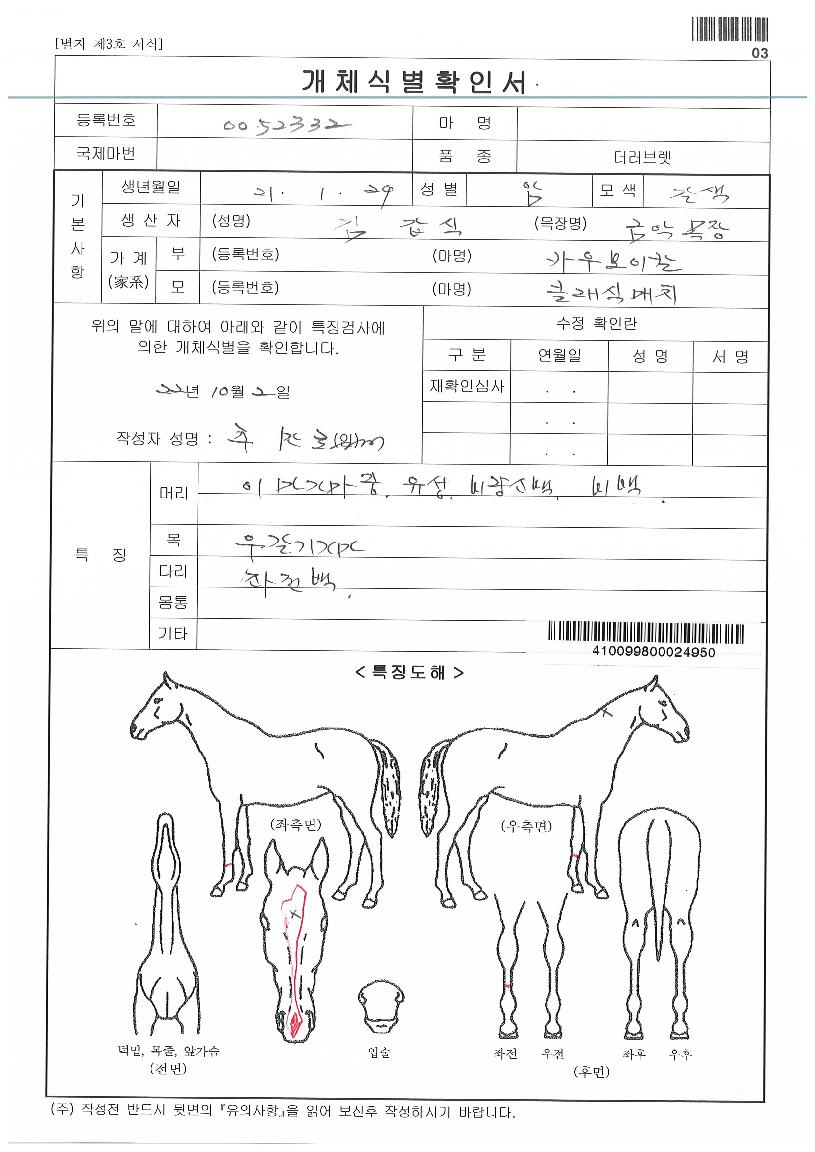 [별지 제3호 서식]
03
개체식별확인서
등록번호 0052332 마 명
국제마번 품 종 더러브렛
기본사항
생년월일 21. 1. 29 성 별 암 모 색 갈색
생 산 자 (성명) 김 갑 식 (목장명) 금악목장
가 계 (家系) 부 (등록번호) (마명) 카우보이칼
모 (등록번호) (마명) 클래식매치
위의 말에 대하여 아래와 같이 특징검사에
의한 개체식별을 확인합니다.
22년 10월 2일
작성자 성명 :
수정 확인란
구 분 연월일 성 명 서 명
재확인심사 . .
. .
. .
특 징
머리 유성, 비량신백, 비백.
목
다리 좌전백.
몸통
기타
410099800024950
< 특징도해 >
(좌측면) (우측면)
턱밑, 목줄, 앞가슴
(전면)
입술
좌전 우전 좌후 우후
(후면)
(주) 작성전 반드시 뒷면의 『유의사항』을 읽어 보신후 작성하시기 바랍니다.